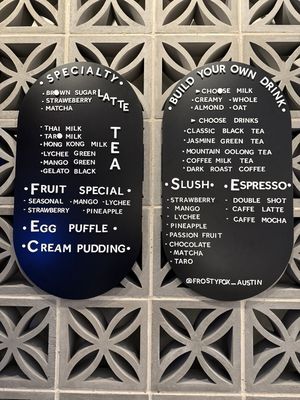 ·SPECIALTY·
LATTE
·BROWN SUGAR
·STRAWEBERRY
·MATCHA
TEA
·THAI MILK
·TARO MILK
·HONG KONG MILK
·LYCHEE GREEN
·MANGO GREEN
·GELATO BLACK
·FRUIT SPECIAL·
·SEASONAL ·MANGO ·LYCHEE
·STRAWBERRY ·PINEAPPLE
·EGG PUFFLE·
·CREAM PUDDING·
·BUILD YOUR OWN DRINK·
►CHOOSE MILK
·CREAMY ·WHOLE
·ALMOND ·OAT
►CHOOSE DRINKS
·CLASSIC BLACK TEA
·JASMINE GREEN TEA
·MOUNTAIN OOLONG TEA
·COFFEE MILK TEA
·DARK ROAST COFFEE
·SLUSH·
·STRAWBERRY
·MANGO
·LYCHEE
·PINEAPPLE
·PASSION FRUIT
·CHOCOLATE
·MATCHA
·TARO
ESPRESSO·
·DOUBLE SHOT
·CAFFE LATTE
·CAFFE MOCHA
@FROSTYFOX_AUSTIN